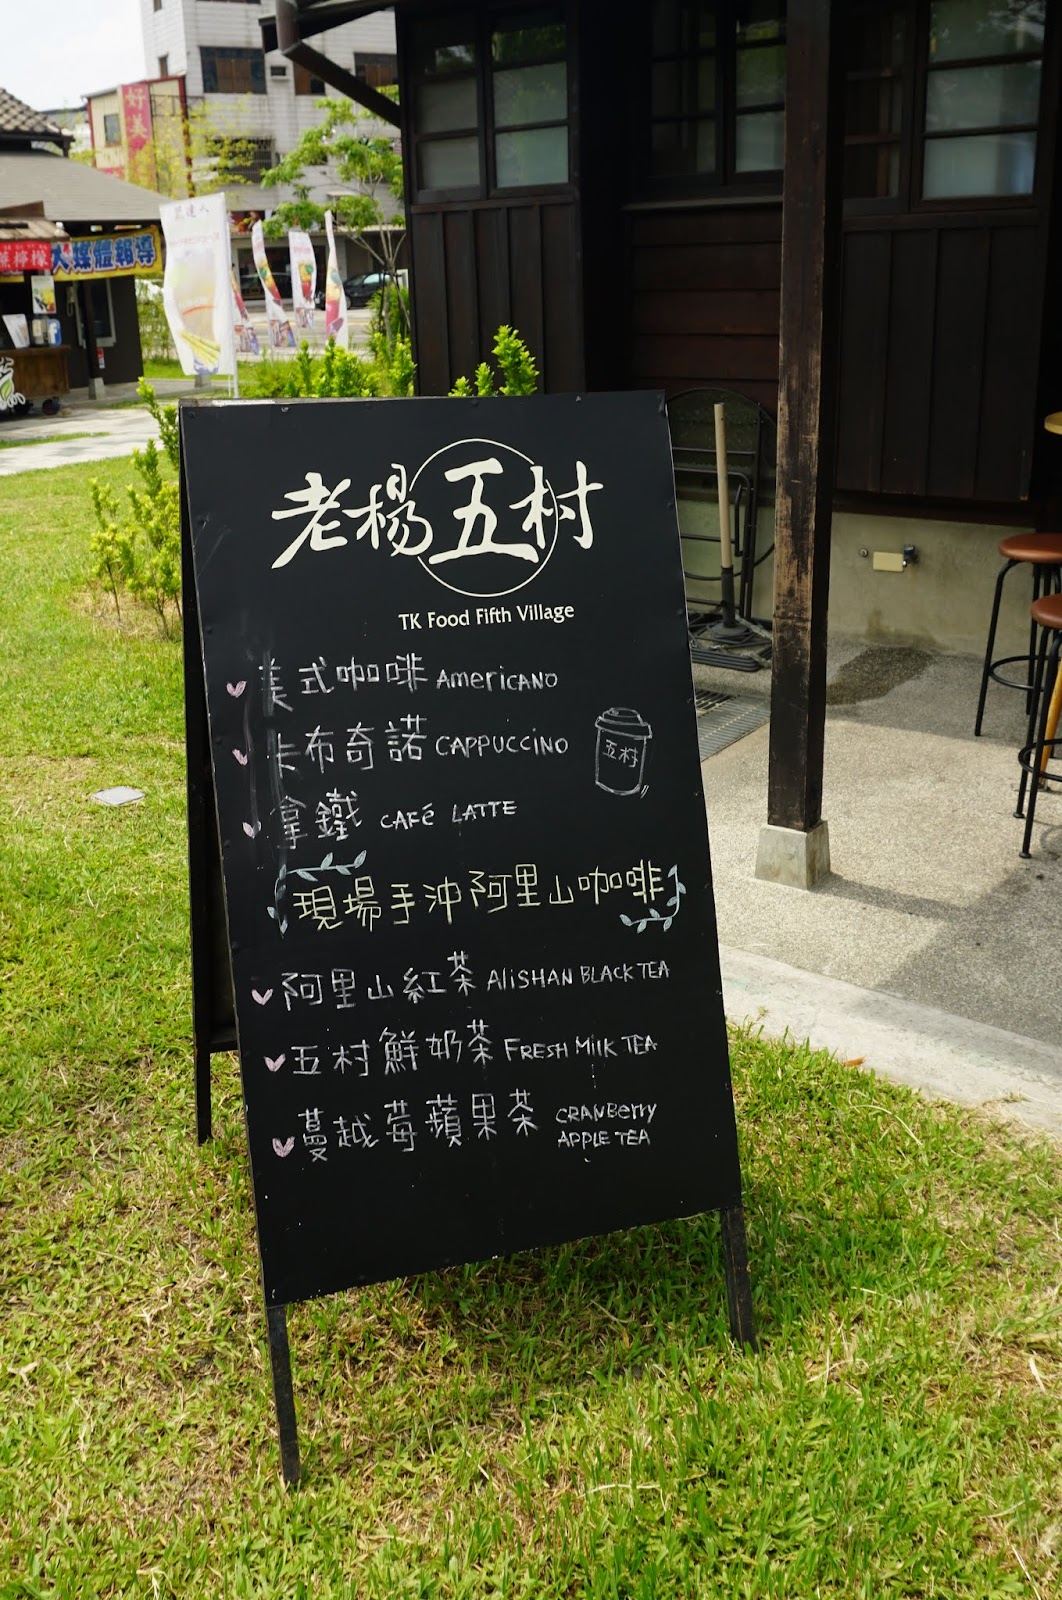 好美
蔗達人
蔗檸檬
大媒體報導
老楊五村
TK Food Fifth Village
美式咖啡 AMERICANO
卡布奇諾 CAPPUCCINO
五村
拿鐵 CAFé LATTE
現場手沖阿里山咖啡
阿里山紅茶 AliSHAN BLACK TEA
五村鮮奶茶 FRESH Milk TEA
蔓越莓蘋果茶 CRANBerry
APPLE TEA